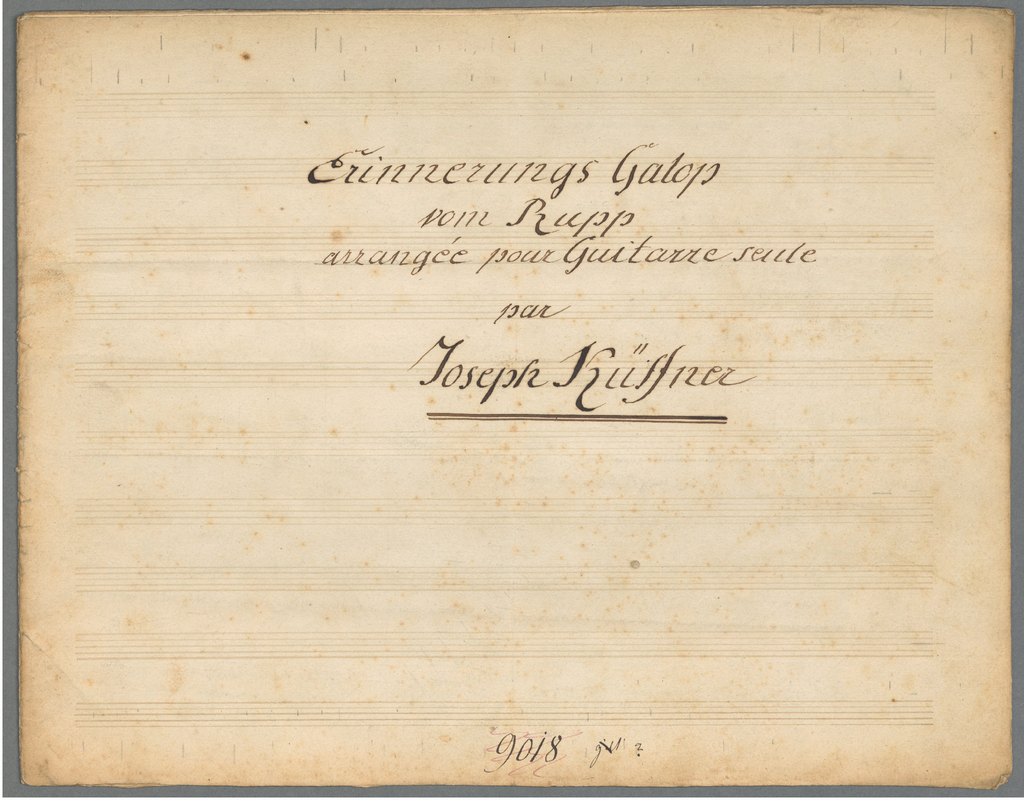 Erinnerungs Galop
vom Rupp
arrangée pour Guitarre seule
par
Joseph Küffner
9018